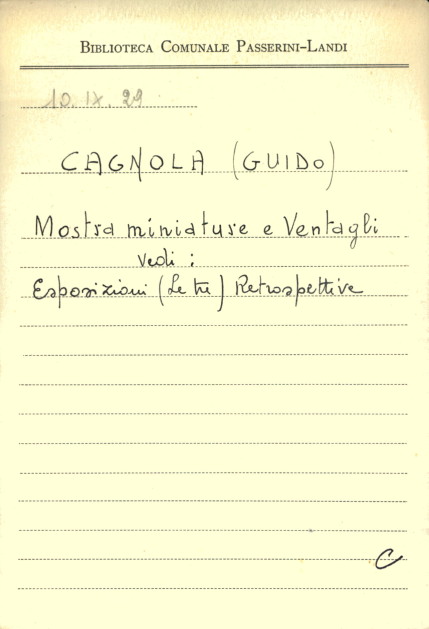 BIBLIOTECA COMUNALE PASSERINI-LANDI
10. IX. 29
CAGNOLA (GUIDO)
Mostra miniature e Ventagli
vedi :
Esposizioni (Le tre) Retrospettive
C